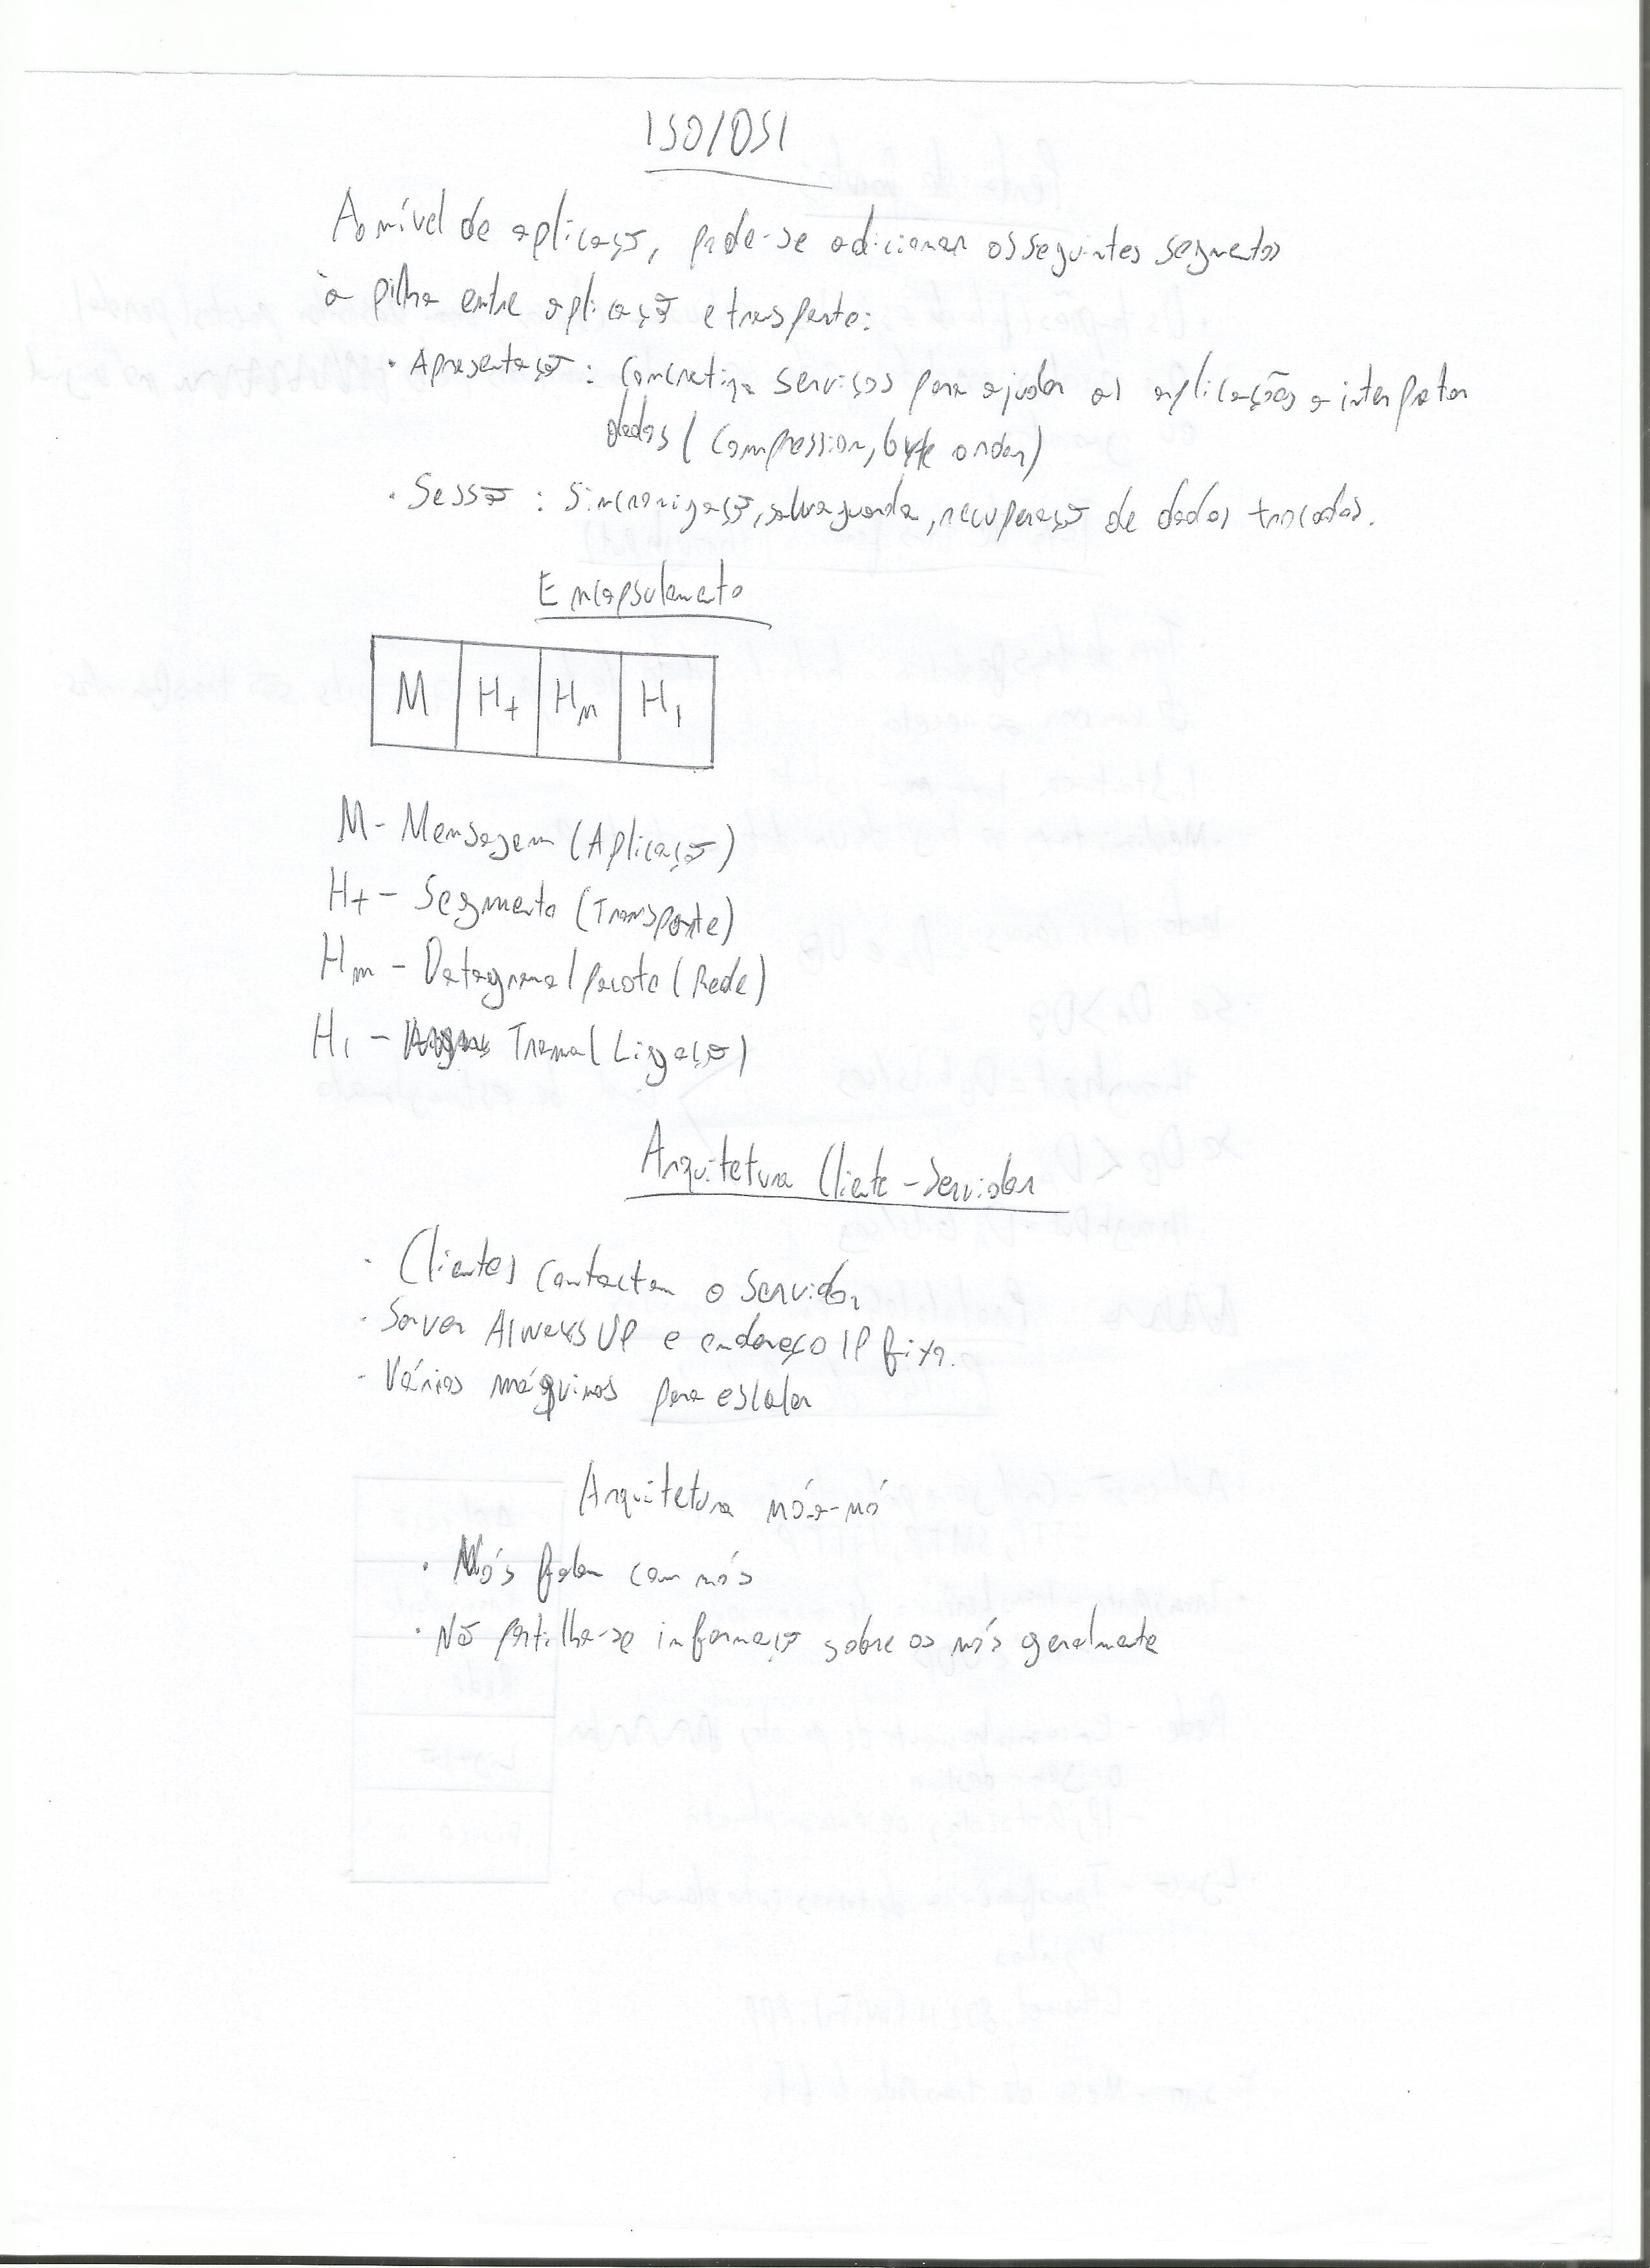 ISO/OSI
Ao nível de aplicação, pode-se adicionar os seguintes segmentos
à pilha entre aplicação e transporte:
· Apresentação : Concretiza serviços para ajudar as aplicações a interpretar
dados (compression, byte order)
· Sessão : Sincronização, salvaguarda, recuperação de dados trocados.
Encapsulamento
M H+ Hn H1
M - Mensagem (Aplicação)
H+ - Segmento (Transporte)
Hn - Datagrama/pacote (Rede)
H1 - Trama (Ligação)
Arquitetura Cliente-Servidor
· Clientes contactam o Servidor
· Server Always UP e endereço IP fixo.
· Várias máquinas para escalar
Arquitetura nó-a-nó
· Nós falam com nós
· Não partilha-se informação sobre os nós geralmente